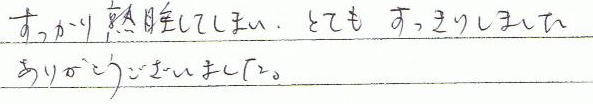 すっかり熟睡してしまい、とても すっきりしました
ありがとうございました。